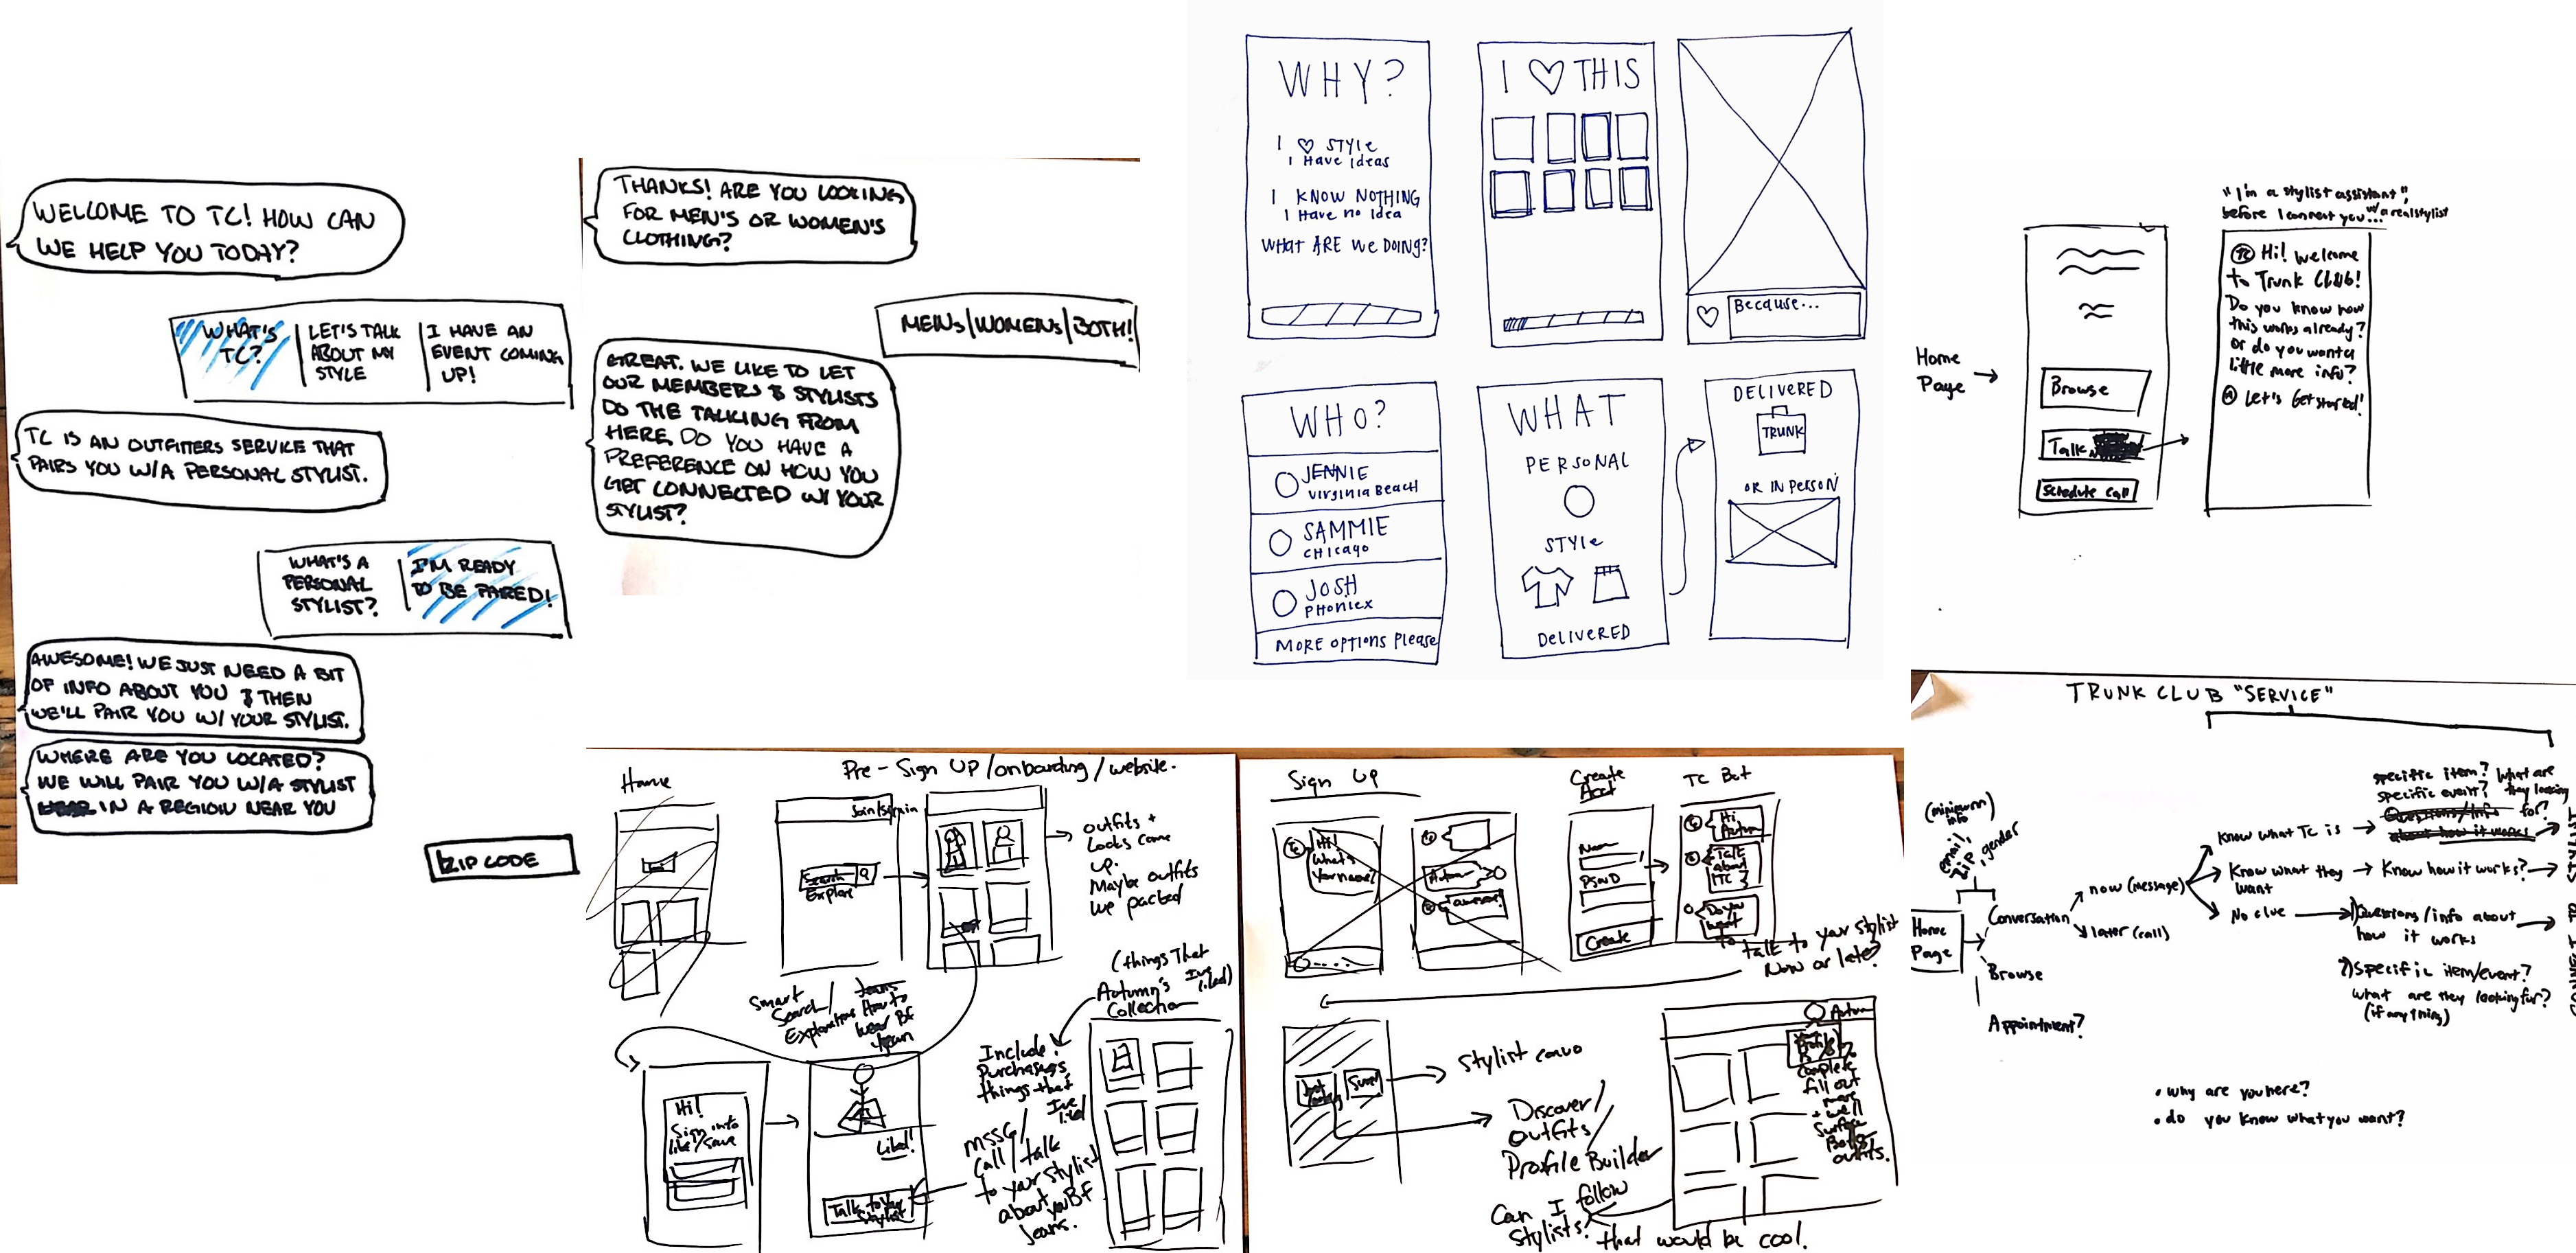 WELCOME TO TC! HOW CAN
WE HELP YOU TODAY?
WHAT'S
TC?
LET'S TALK
ABOUT MY
STYLE
I HAVE AN
EVENT COMING
UP!
TC IS AN OUTFITTERS SERVICE THAT
PAIRS YOU W/A PERSONAL STYLIST.
WHAT'S A
PERSONAL
STYLIST?
I'M READY
TO BE PAIRED!
AWESOME! WE JUST NEED A BIT
OF INFO ABOUT YOU & THEN
WE'LL PAIR YOU W/ YOUR STYLIST.
WHERE ARE YOU LOCATED?
WE WILL PAIR YOU W/A STYLIST
IN A REGION NEAR YOU
ZIP CODE
THANKS! ARE YOU LOOKING
FOR MEN'S OR WOMEN'S
CLOTHING?
MENS/WOMENS/BOTH!
GREAT. WE LIKE TO LET
OUR MEMBERS & STYLISTS
DO THE TALKING FROM
HERE. DO YOU HAVE A
PREFERENCE ON HOW YOU
GET CONNECTED W/ YOUR
STYLIST?
WHY?
I ♡ STYLE
I Have Ideas
I KNOW NOTHING
I Have no Idea
WHAT ARE WE DOING?
I ♡ THIS
Because...
WHO?
JENNIE
Virginia Beach
SAMMIE
CHICAGO
JOSH
PHONIEX
MORE OPTIONS Please
WHAT
PERSONAL
STYLE
DELIVERED
DELIVERED
TRUNK
OR IN PERSON
"I'm a stylist assistant",
before I connect you... w/ a real stylist
Home
Page
Browse
Talk
Schedule Call
TC Hi! Welcome
to Trunk Club!
Do you know how
this works already?
or do you want a
little more info?
Let's Get started!
Pre-Sign UP/onboarding/website.
Home
Join/signin
Search
Explore
outfits +
Looks come
up.
Maybe outfits
we packed
Smart
Search/
Explorations
Jeans
How to
wear BF
Jean
Hi!
Sign into
like/save
Liked!
Talk to your
stylist
(things That
I've liked)
Autumn's
Collection
Include
Purchases,
things that
I've liked
MSSG/
Call/talk
to your stylist
about your BF
Jeans.
Sign Up
Hi!
What's
your name?
Autumn
Create
Acct
Name
PSWD
Create
TC Bot
Hi
Autumn
Talk
about
TC
Do you
want
to
talk to your stylist
Now or later?
Stylist convo
Discover/
outfits
Profile Builder
Can I follow
stylists?
that would be cool.
complete
fill out
more
+ we'll
Surface
Better
outfits.
TRUNK CLUB "SERVICE"
(minimum
info)
email,
ZIP, gender
Home
Page
Conversation
Browse
Appointment?
now (message)
later (call)
Know what TC is
specific item?
specific event?
What are
they looking
for?
Questions/Info
about how it works
Know what they
want
Know how it works?
No clue
1) Questions/info about
how it works
2) Specific item/event?
what are they looking for?
(if any thing)
• why are you here?
• do you know what you want?